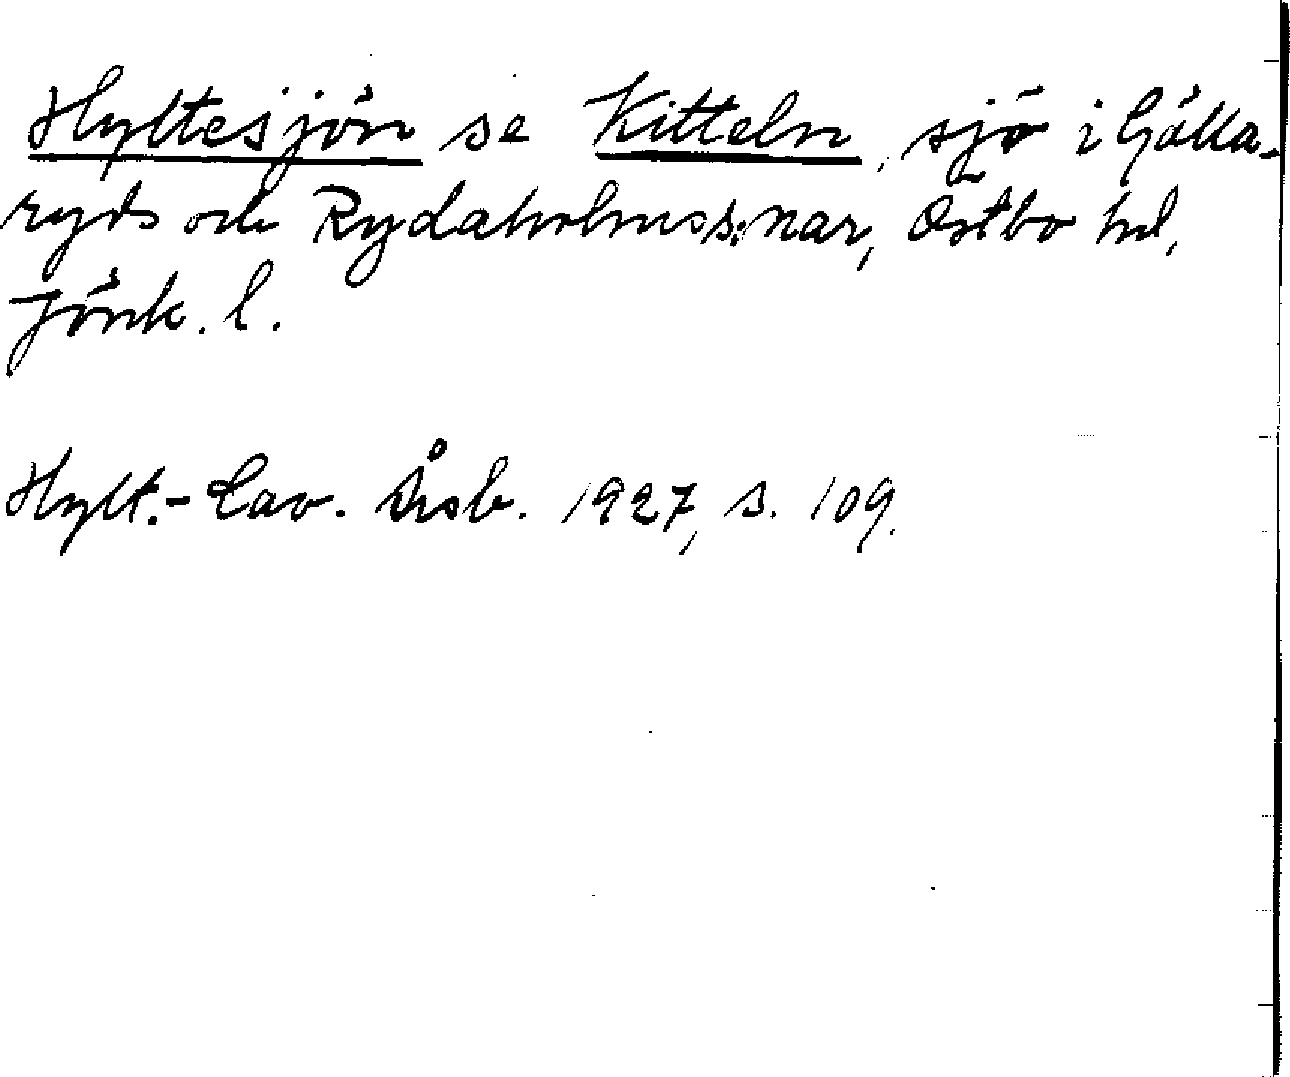 Hyltesjön se Kitteln, sjö i Gälla-
ryds och Rydaholms s:nar, Östbo hd,
Jönk. l.
Hylt.-Cav. Årsb. 1927, s. 109.